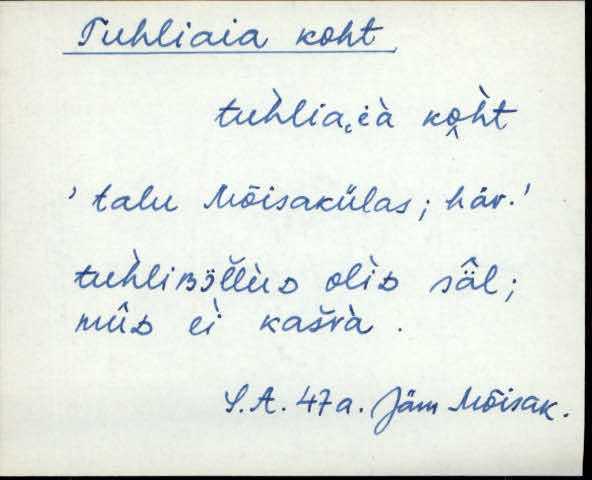 Tuhliaia koht
tuh̀liaꞈi̯à ko̭h̀t
' talu Mõisakülas; häv.'
tuh̀liʙɜ̈ĺ̌lùᴅ olìᴅ sä̂l;
mûᴅ ei kašvà.
S.A. 47a. Jäm Mõisak.